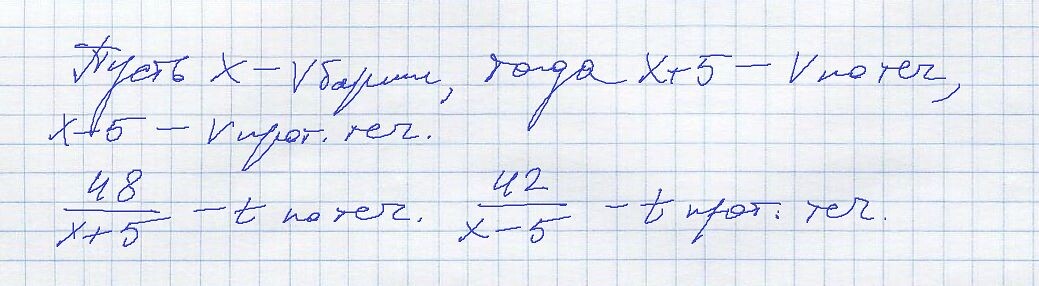 Пусть x – V баржи, тогда x+5 – V по теч,
x-5 – V прот. теч.
48/(x+5) – t по теч. 42/(x-5) – t прот. теч.